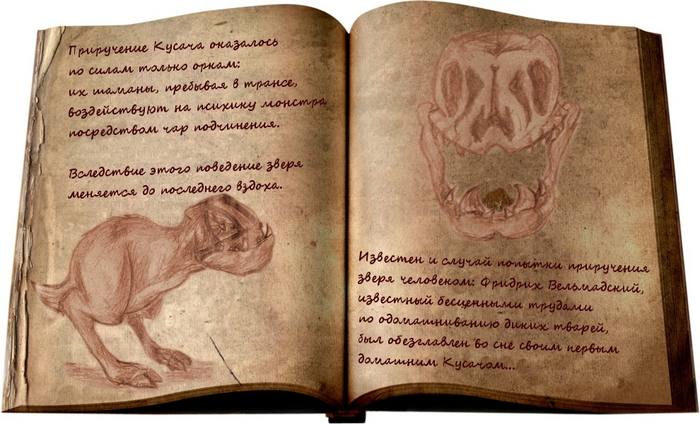 Приручение Кусача оказалось
по силам только оркам:
их шаманы, пребывая в трансе,
воздействуют на психику монстра
посредством чар подчинения.
Вследствие этого поведение зверя
меняется до последнего вздоха.
Известен и случай попытки приручения
зверя человеком: Фридрих Вельмадский,
известный бесценными трудами
по одомашниванию диких тварей,
был обезглавлен во сне своим первым
домашним Кусачом...